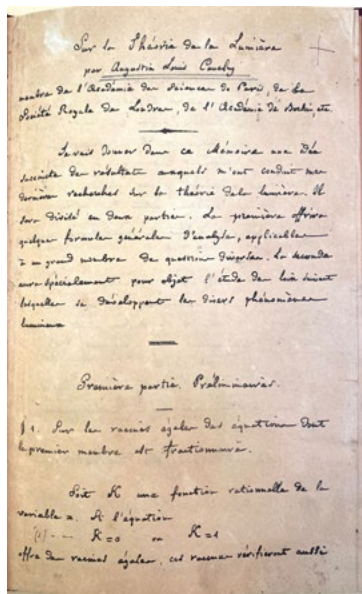 Sur la Théorie de la Lumière
par Augustin Louis Cauchy
membre de l'Académie des Sciences de Paris, de la
Société Royale de Londres, de l'Académie de Berlin, etc.
Je vais donner dans ce Mémoire une idée
succincte des résultats auxquels m'ont conduit mes
dernières recherches sur la théorie de la lumière. Il
sera divisé en deux parties. La première offrira
quelques formules générales d'analyse, applicables
à un grand nombre de questions diverses. La seconde
aura spécialement pour objet l'étude des lois suivant
lesquelles se développent les divers phénomènes
lumineux
Première partie. Préliminaires.
§ 1. Sur les racines égales des équations dont
le premier membre est fractionnaire.
Soit K une fonction rationnelle de la
variable x. Si l'équation
(1) K = 0 ou K = 1
offre des racines égales, ces racines vérifieront aussi